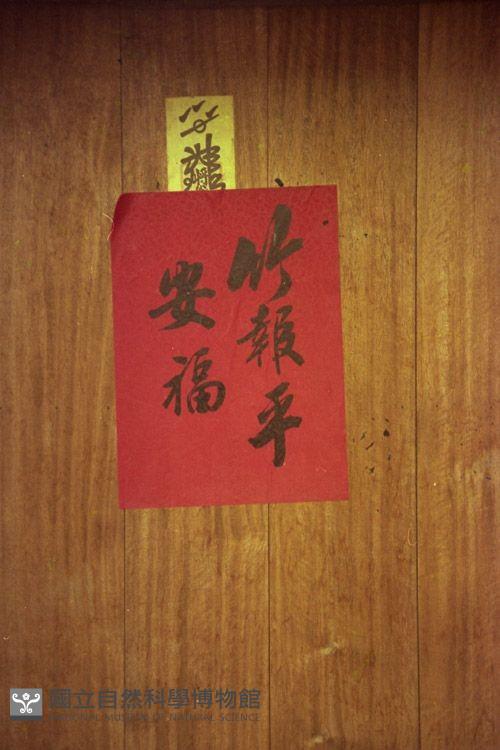 竹報平
安福
國立自然科學博物館
NATIONAL MUSEUM OF NATURAL SCIENCE